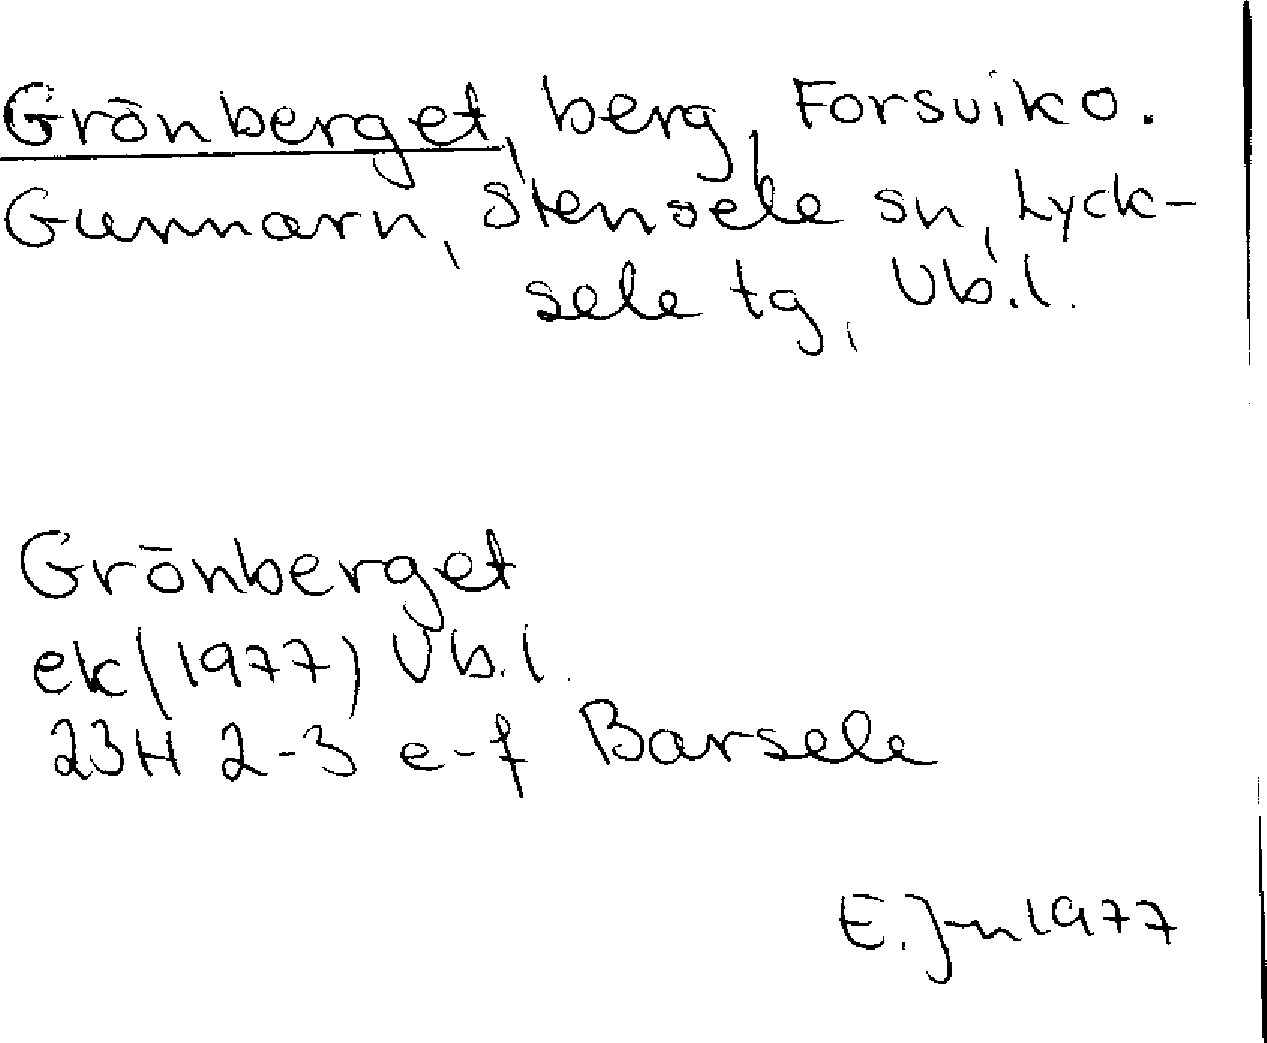 Grönberget, berg, Forsviko.
Gunnarn, Stensele sn, Lyck-
sele tg, Vb.l.
Grönberget
ek (1977) Vb.l.
23H 2-3 e-f Barsele
E. Jn 1977